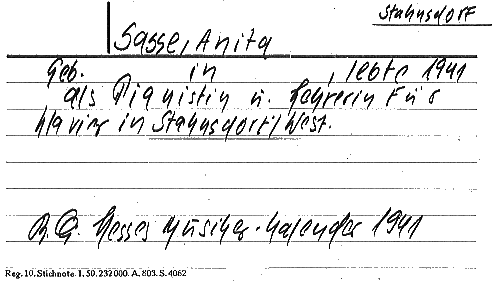 Stahnsdorf
Sasse, Anita
Geb. in , lebte 1941
als Pianistin u. Lehrerin für
Klavier in Stahnsdorf/West.
R.G. Hesses Musiker-Kalender 1941
Reg. 10. Stichnote. 1. 50. 232000. A. 803. S. 4062